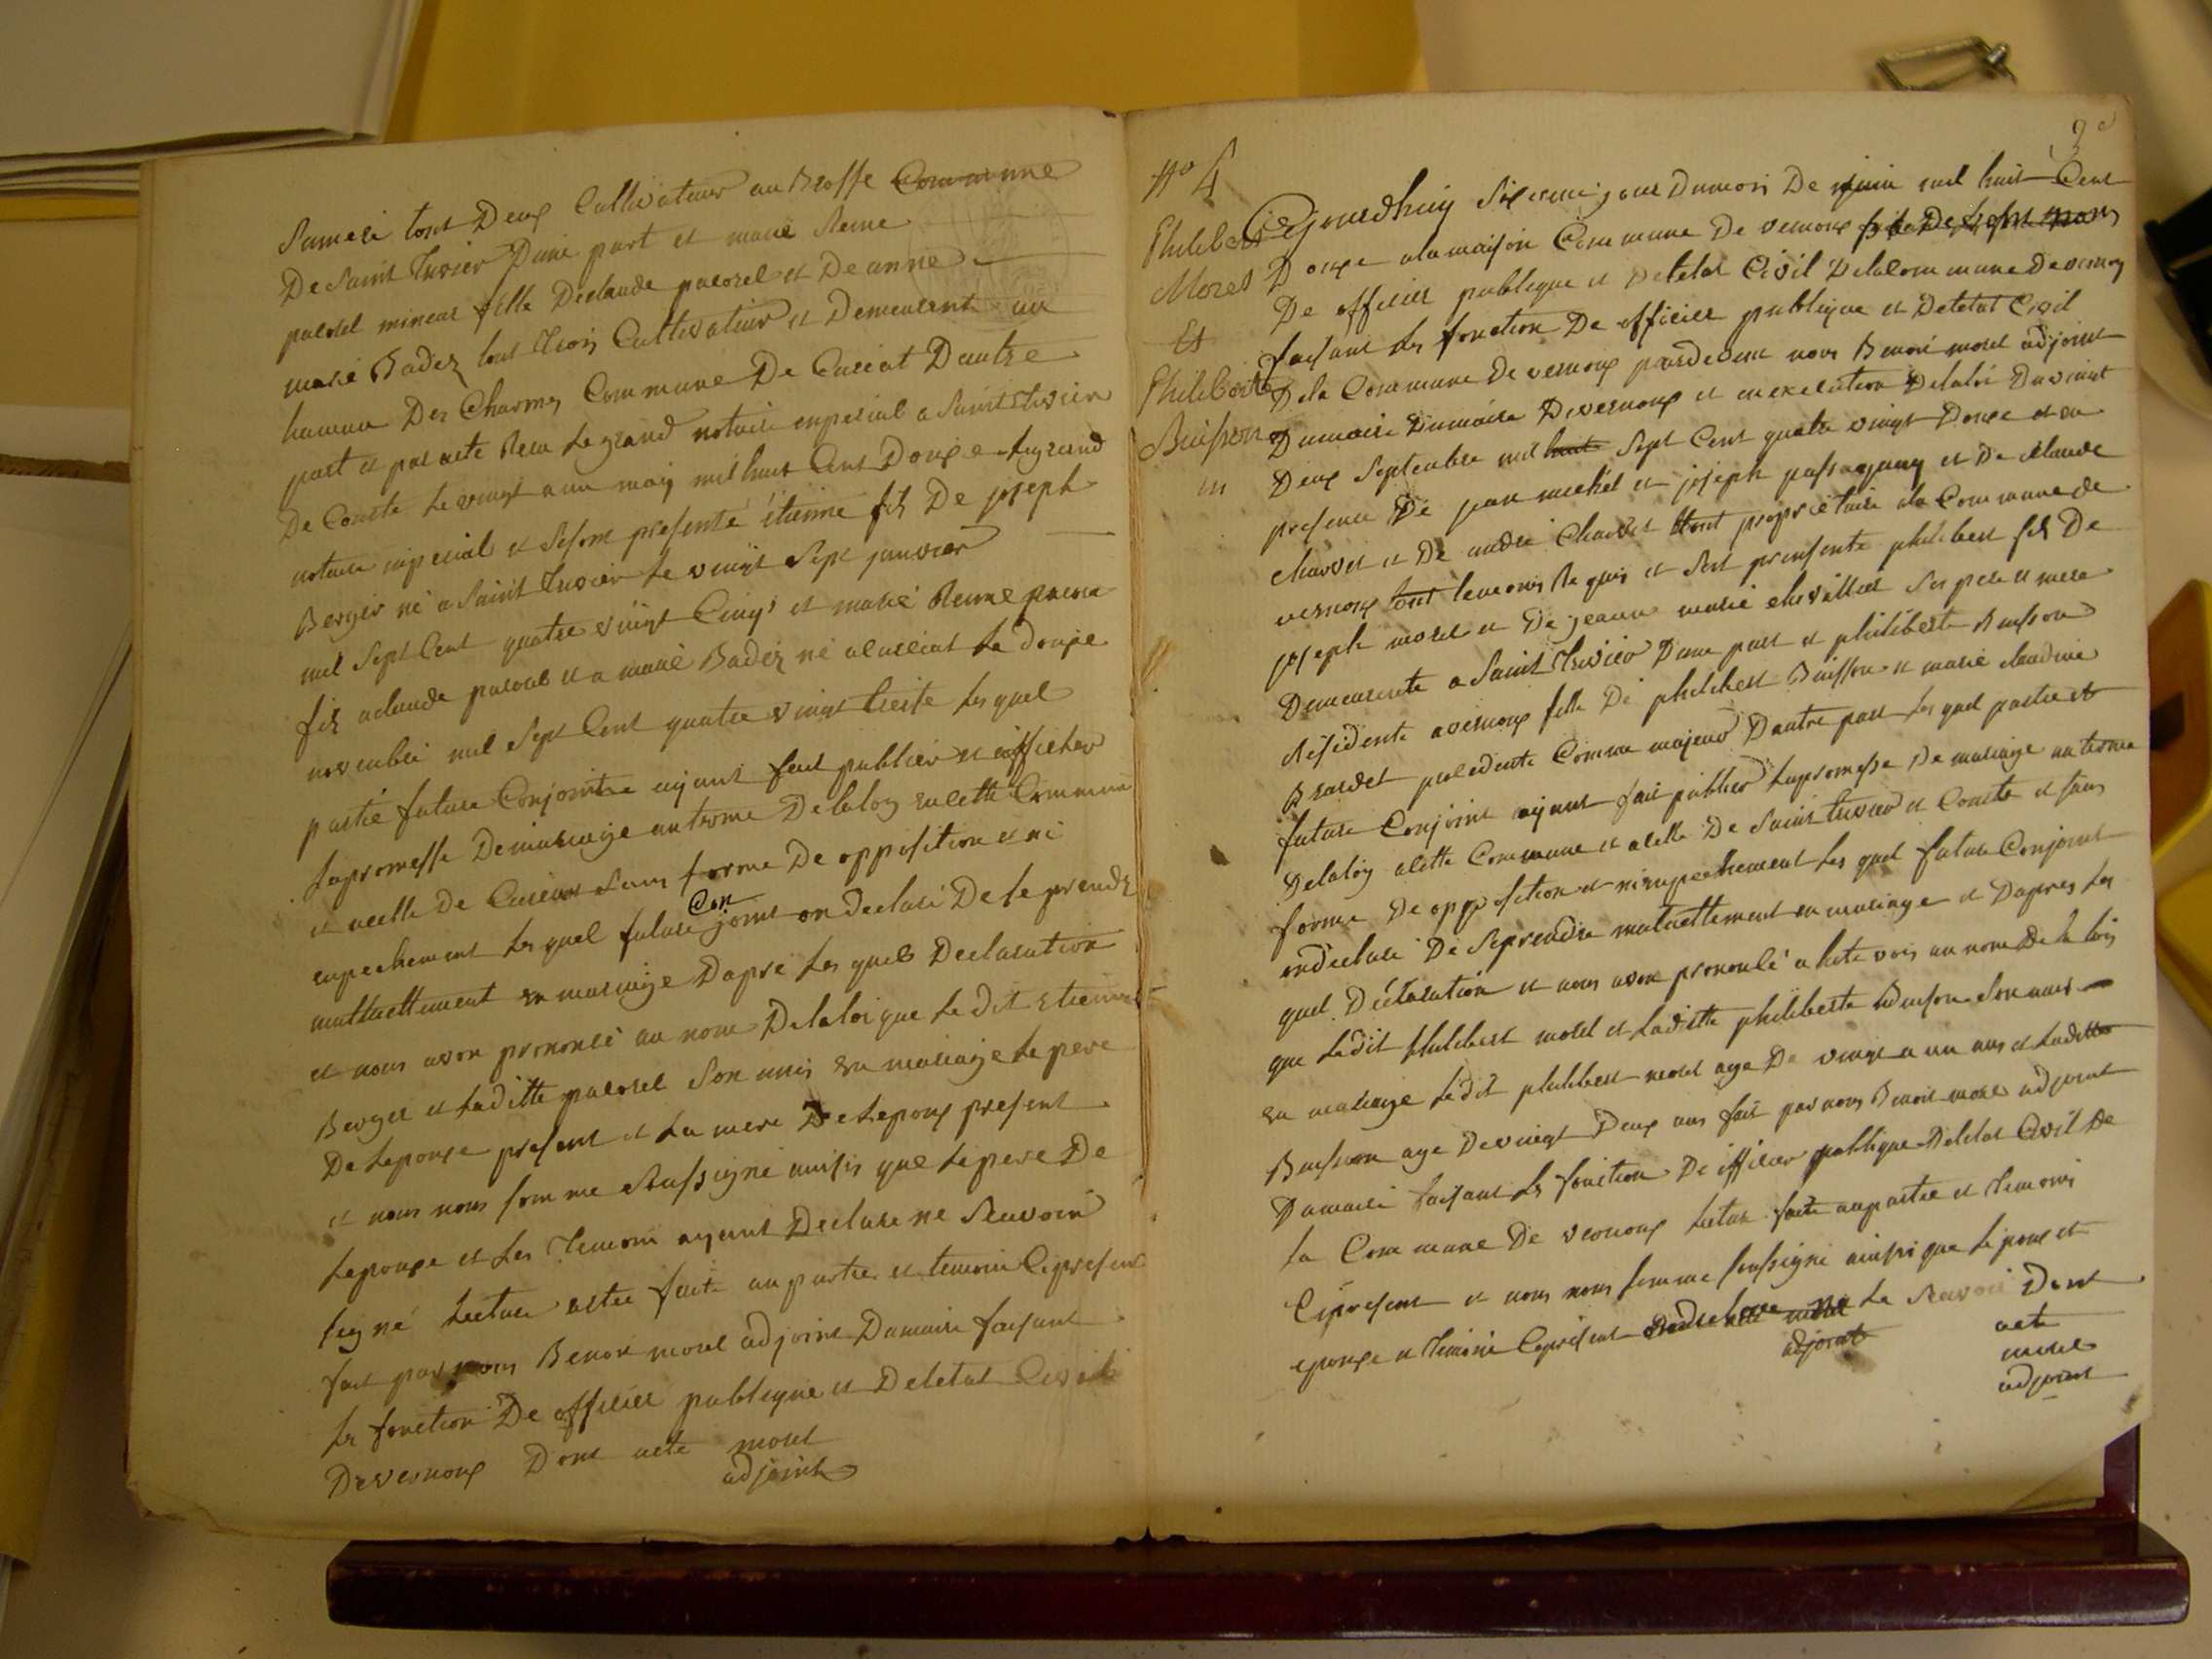 Sameri tout Deux Cultivateur au Brosse Commune
De Saint Trivier Dune part et marie Reine
pacorel mineur fille Declaude pacorel et De anne
marie Badez tout trois Cultivateur et Demeurent au
hameau Des Charmes Commune De Curciat Dautre
part et par acte Recu Legrand notaire imperial a Saint trivier
De Courte Le vingt a un may mil huit Cent Douze Legrand
notaire imperial et Sesont presenté étienne fils De joseph
Berger né a Saint Trivier Le vingt Sept janvier
mil Sept Cent quatre vingt Cinq et marie Reine
fils aclaude pacorel et a marie Badez né a Curciat Le Douze
novembre mil Sept Cent quatre vingt treize Les quel
partie future Conjointe ayant fait publier et afficher
Lapromesse De mariage auterme Delaloy en Cette Commune
et acelle De Curciat Sans forme De opposition et ni
enpechement Les quel future Con joint on declaré De Se prendre
mutuellement en mariage Dapré Les quels Declaration
et nous avon prononcé au nom Delaloi que Le dit Etienne
Berger et Laditte pacorel Son unis en mariage Le pere
De Lepouse present et La mere De Lepoux present
et nous nous somme Soussigné ainsis que Le pere De
Lepouse et Les Temoin ayant Declare ne Scavoir
signé Lecture estre faite au partie et temoin Cy present
fait par nous Benoit morel adjoint Dumaire faisant
Les fonction De officier publique et De letat Civil
Devernoux Dont acte morel
adjoint
3e
No 4
Philibert
Morel
Et
Philiberte
Buisson
m
Cejourdhuy Sixieme jour Dumois De juin mil huit Cent
Douze ala maison Commune De vernoux
De officier publique et Deletat Civil Delacommune Devernoux
faisant Les fonction De officier publique et Detetat Civil
Dela Commune De vernoux pardevent nous Benoit morel adjoint
Dumaire Dumaire Devernoux et en execution Delaloi Duvint
Deux Septembre mil huit Sept Cent quatre vingt Douze et en
presence De jean michel et joseph passaquay et De Claude
charvet et De andre Charvet tout proprietaire ala Commune de
vernoux tout temoins Requis et Sest presente philibert fils De
joseph morel et De jeanne marie chevillard Ses pere et mere
Demeurente a Saint Trivier Dune part et philiberte Buisson
Residente avernoux fille De philibert Buisson et marie claudine
Brardet Comme majeur Dautre part Les quel partie et
future Conjoint ayant fait publier Lapromesse De mariage au terme
Delaloy a Cette Commune et a Celle De Saint trivier et Courte et Sans
forme De opposition et ni enpechement Les quel future Conjoint
on declaré De Seprendre mutuellement en mariage et Dapres Les
quel Déclaration et nous avon prononcé a hute vois au nom De la loy
que Ledit philibert morel et Laditte philiberte Buisson Son unis
en mariage Ledit philibert morel age De vingt a un ans et Laditte
Buisson age Devingt Deux ans fait par nous Benoit morel adjoint
Dumaire faisant Les fonction De officier publique Deletat Civil De
La Commune De vernoux Lecture faite aupartie et temoins
Cipresent et nous nous somme soussigné ainssi que Lepoux et
epouse et temoins Cipresent Le Scavoir Dont
adjoint
acte
morel
adjoint